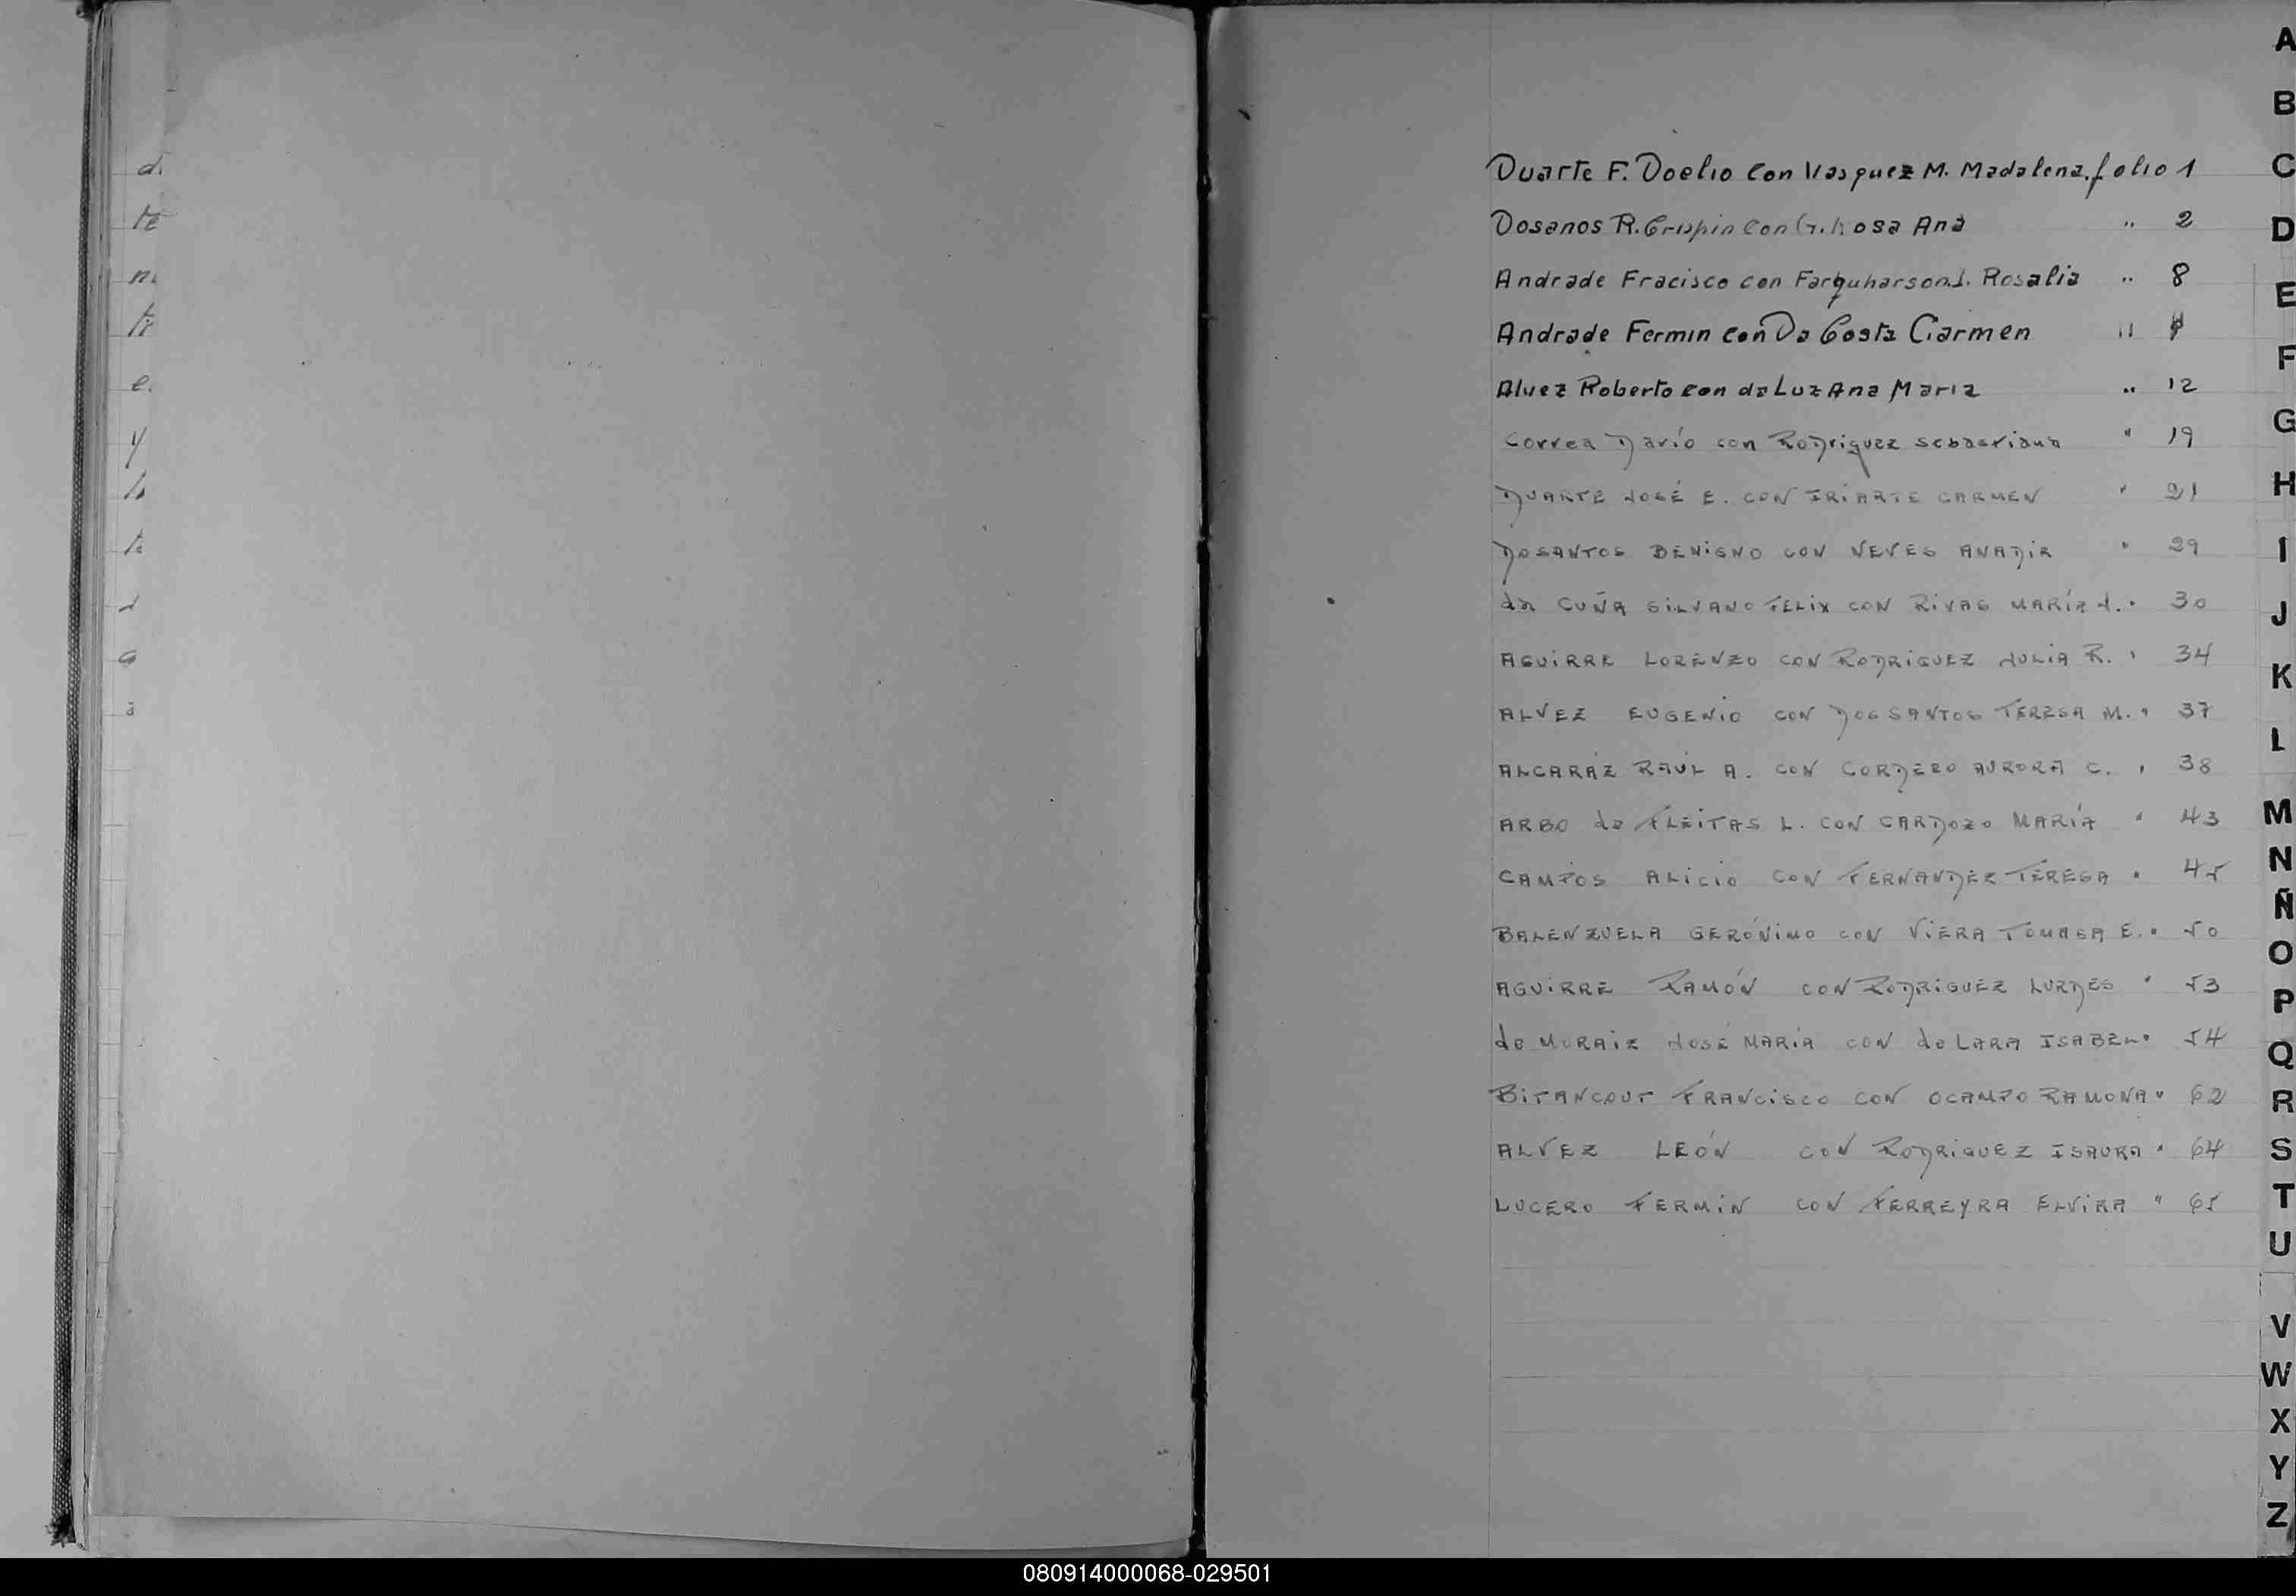 d.
te
n.
ti
e.
y
t.
d
a
a
Duarte F. Doelio con Vasquez M. Madalena. folio 1
Dosanos R. Crispin con G. Rosa Ana " 2
Andrade Fracisco con Farquharson J. Rosalia " 8
Andrade Fermin con Da Costa Carmen "
Alvez Roberto con da Luz Ana Maria " 12
Correa Darío con Rodriguez Sebastiana " 19
DUARTE JOSÉ E. CON IRIARTE CARMEN " 21
DOSANTOS BENIGNO CON NEVES ANADIR " 29
da CUÑA SILVANO FELIX CON RIVAS MARÍA J. " 30
AGUIRRE LORENZO CON RODRIGUEZ JULIA R. " 34
ALVEZ EUGENIO CON DOSSANTOS TERESA M. " 37
ALCARAZ RAÚL A. CON CORDERO AURORA C. " 38
ARBO de FLEITAS L. CON CARDOZO MARÍA " 43
CAMPOS ALICIO CON FERNANDEZ TERESA " 45
BALENZUELA GERÓNIMO CON VIERA TOMASA E. " 50
AGUIRRE RAMÓN CON RODRIGUEZ LURDES " 53
de MORAIZ JOSÉ MARÍA CON de LARA ISABEL " 54
BITANCOUT FRANCISCO CON OCAMPO RAMONA " 62
ALVEZ LEÓN CON RODRIGUEZ ISAURA " 64
LUCERO FERMÍN CON FERREYRA ELVIRA " 65
A
B
C
D
E
F
G
H
I
J
K
L
M
N
Ñ
O
P
Q
R
S
T
U
V
W
X
Y
Z
080914000068-029501